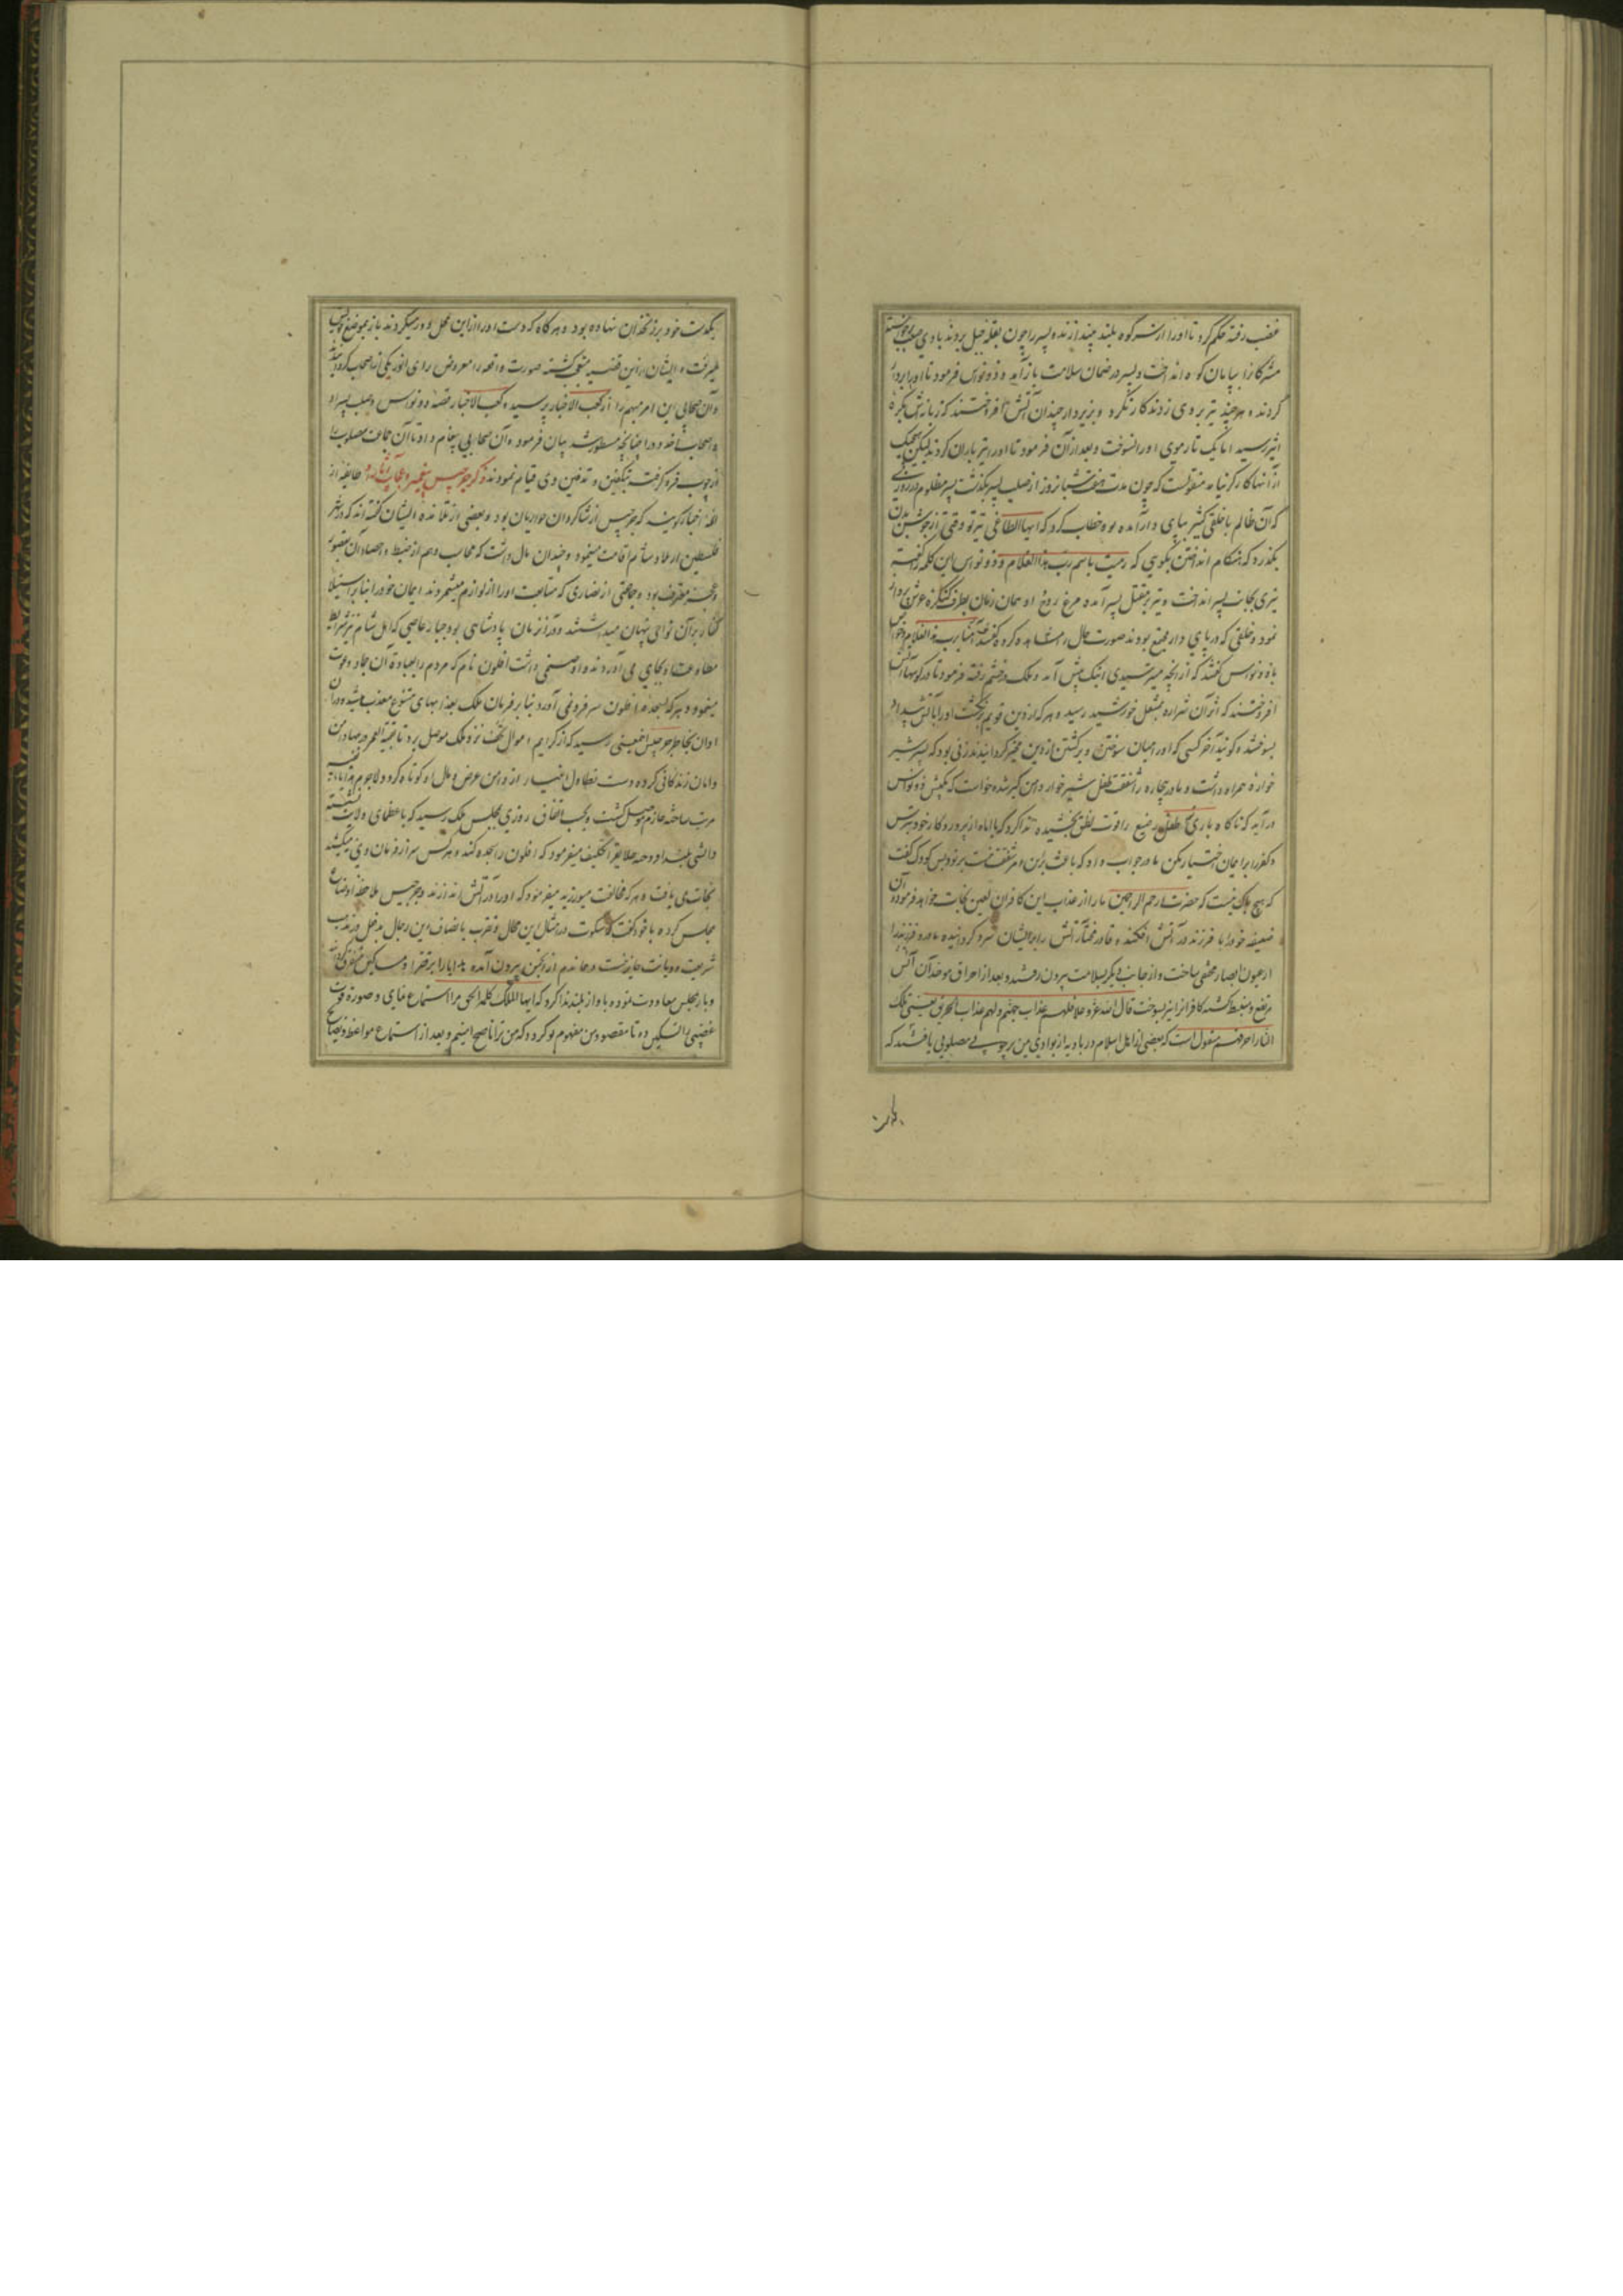 غضب رفته حکم کرد تا او را از سر کوه بلند بیندازند و پسر را چون بقله جبل بردند بادی صعب برخاسته
مشرکانرا بپایان کوه انداخت و پسر در ضمان سلامت باز آمد و ذونواس فرمود تا او را بردار
کردند و هر چند تیر بر وی زدند کارنکرد و بزیر دار چندان آتش افروختند که زبانه‌اش بکره
اثیر رسید اما یک تار موی او را نسوخت و بعد از آن فرمود تا او را تیر باران کردند لیکن هیچیک
از آنها کارگر نیامد منقولست که چون مدت هفت شبانروز از صلب پسر بگذشت پسر مظلوم در روزی
که آن ظالم با خلقی کثیر بپای دار آمده بود خطاب کرد که ایها الطاغی تیر تو وقتی از جوشن بدن
بگذرد که هنگام انداختن بگویی که رمیت باسم رب هذا الغلام و ذونواس این کلمه گفته
تیری بجانب پسر انداخت و تیر بر مقتل پسر آمده مرغ روح او همان زمان بطرف کنگره عرش پرواز
نمود و خلقی که در پای دار مجتمع بودند صورت حال را مشاهده کرده گفتند آمنا برب هذا الغلام
با ذونواس گفتند که از آنچه میترسیدی اینک پیش آمد و ملک در خشم رفته فرمود تا در کوها آتش
افروختند که از آن شراره بمشعل خورشید رسید و هر که از دین قویم برنگشت او را بآتش بیداد
بسوختند و گویند آخر کسی که او را میان سوختن و برگشتن از دین مخیر گردانیدند زنی بود که پسر شیر
خواره همراه داشت و مادر بیچاره را شفقت طفل شیر خوار دامن گیر شده خواست که بکیش ذونواس
در آید که ناگاه باری طفل رضیع را قوت نطق بخشیده ندا کرد که یا اماه از پروردگار خود بترس
و کفر را بر ایمان اختیار مکن مادر جواب داد که باعث برین امر شفقتست بر تو و بس کودک گفت
که هیچ باک نیست که حضرت ارحم الراحمین ما را از عذاب این کافران لعین نجات خواهد فرمود آن
ضعیفه خود را با فرزند در آتش افکند و قادر مختار آتش را بر ایشان سرد گردانیده مادر و فرزند را
از عیون ابصار مخفی ساخت و از جانب دیگر بسلامت بیرون رفتند و بعد از احراق موحدان آتش
مرتفع و منبسط گشته کافران را نیز بسوخت قال الله عز و علا فلهم عذاب جهنم و لهم عذاب الحریق یعنی تلک
النار احرقتهم منقول است که بعضی از اهل اسلام در بادیه از بوادی یمن بر چوبی مصلوبی یافتند که
یکدست خود بر زنخدان نهاده بود و هر گاه که دست او را از این محل دور میکردند باز بموضع خویش
میرفت و ایشان از این قضیه متعجب گشته صورت واقعه را معروض رای انور یکی از اصحاب گردانیدند
و آن صحابی این امر مبهم را از کعب الاحبار پرسید و کعب الاحبار قصه ذونواس و صلب پسر او
و اصحاب اخدود را چنانچه مسطور شد بیان فرمود و آن صحابی پیغام داد تا آن جماعت مصلوب را
از چوب فرو گرفته بتکفین و تدفین وی قیام نمودند ذکر جرجیس پیغمبر و عجایب آثار او طایفه از
ائمه اخبار گویند که جرجیس از شاگردان حواریان بود و بعضی از تلامذه ایشان گفته‌اند که در شهر
فلسطین از بلاد شام اقامت مینمود و چندان مال داشت که محاسب وهم از ضبط و احصاء آن بقصور
و عجز معترف بود و جماعتی از نصاری که متابعت او را از لوازم میشمردند ایمان خود را بنابر استیلا
کفار بر آن نواحی پنهان میداشتند و در آن زمان پادشاهی بود جبار عاصی که اهل شام نیز شرایط
مطاوعت او بجای می آوردند و او صنمی داشت افلون نام که مردم را بعبادة آن جماد دعوت
مینمود و هر که بسجده افلون سر فرو نمی آورد بنا بر فرمان ملک بعذابهای متنوع معذب میشد و در آن
اوان بخاطر جرجیس اینمعنی رسید که از کرایم اموال تحف نزد ملک موصل برد تا بقیة العمر در مهاد امن
و امان زندگانی کرده دست تطاول اشرار از دامن عرض و مال او کوتاه گردد لاجرم
مرتب ساخته عازم موصل گشت و بحسب اتفاق روزی بمجلس ملک رسید که با عظمای ولایت نشسته
و آتشی بلند افروخته خلایق را تکلیف میفرمود که افلون را سجده کنند و هر کس سر از فرمان وی نمیکشید
نجات می یافت و هر که مخالفت میورزید میفرمود که او را در آتش اندازند و جرجیس ملاحظه اوضاع
مجلس کرده با خود گفت که سکوت در امثال این محال و تقرب باصناف این رجال مدخل در مذهب
شریعت و دیانت جایز نیست و جازم از انجمن بیرون آمده هدایا را بر فقرا و مساکین متفرق گردانید
و باز بمجلس معاودت نموده بآواز بلند ندا کرد که ایها الملک کلمة الحق مرا استماع نمای و صورة قوت
غضبی را تسکین ده تا مقصود من مفهوم تو گردد که من ترا ناصح امینم و بعد از استماع مواعظ و نصایح